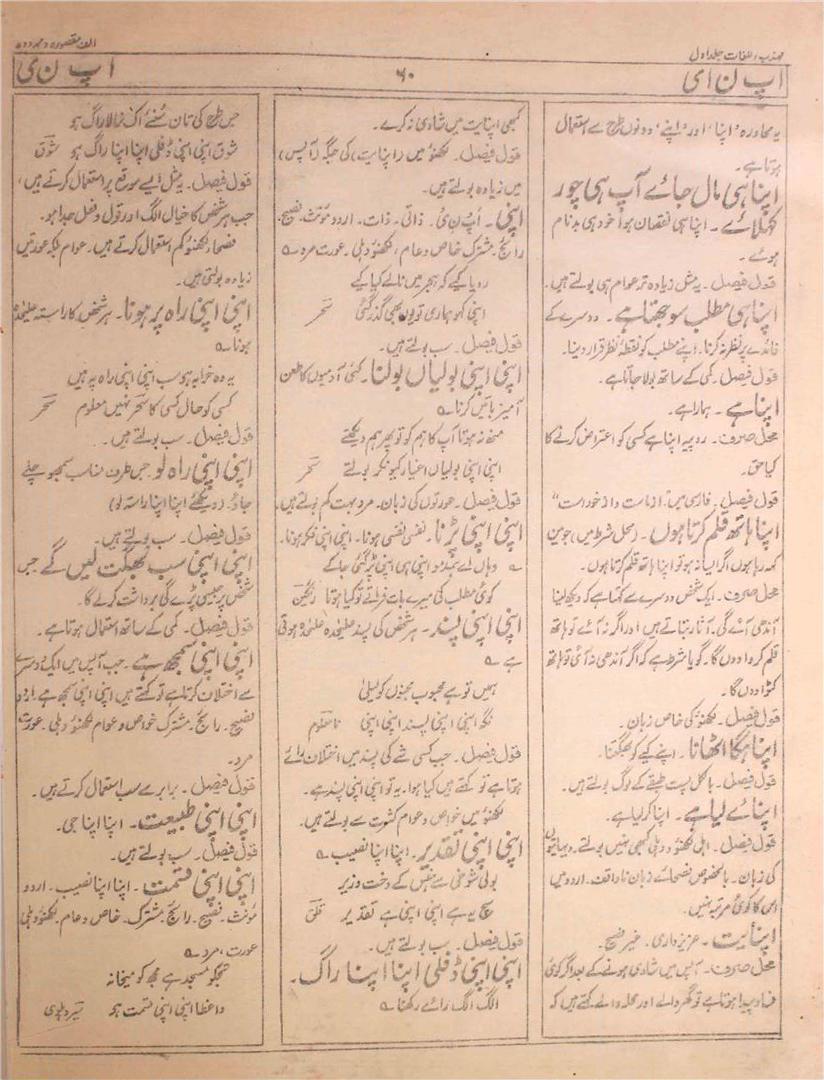 مہذب اللغات جلد اول
الف مقصورہ و ممدودہ
اپ ن ای
۶۰
اپ ن ی
یہ محاورہ 'اپنا' اور 'اپنے' دونوں طرح سے استعمال
ہوتا ہے۔
اپنا ہی مال جائے آپ ہی چور
کہلائے۔ اپنا ہی نقصان ہوا خود ہی بدنام
ہوئے۔
قول فیصل۔ یہ مثل زیادہ تر عوام ہی بولتے ہیں۔
اپنا ہی مطلب سوجھتا ہے۔ دوسرے کے
فائدے پر نظر نہ کرنا۔ اپنے مطلب کو نقطۂ نظر قرار دینا۔
قول فیصل۔ کمی کے ساتھ بولا جاتا ہے۔
اپنا ہے۔ ہمارا ہے۔
محل صرف۔ روپیہ اپنا ہے کسی کو اعتراض کرنے کا
کیا حق۔
قول فیصل۔ فارسی میں "از ماست و از خود است"
اپنا ہاتھ قلم کرتا ہوں۔ (محل شرط میں) جو میں
کہہ رہا ہوں اگر ایسا نہ ہو تو اپنا ہاتھ قلم کرتا ہوں۔
محل صرف۔ ایک شخص دوسرے سے کہتا ہے کہ دیکھ لینا
آندھی آئے گی۔ آثار بتاتے ہیں اور اگر نہ آئے تو ہاتھ
قلم کروا دوں گا۔ گویا شرط ہے کہ اگر آندھی نہ آئی تو ہاتھ
کٹوا دوں گا۔
قول فیصل۔ لکھنؤ کی خاص زبان۔
اپنا ہگا اٹھانا۔ اپنے کیے کو بھگتنا۔
قول فیصل۔ بالکل پست طبقے کے لوگ بولتے ہیں۔
اپنائے لیا ہے۔ اپنا کر لیا ہے۔
قول فیصل۔ اہل لکھنؤ و دہلی کبھی نہیں بولتے۔ دیہاتیوں
کی زبان۔ بالخصوص فصحائے زبان ناواقف۔ اردو میں
اس کا کوئی مرتبہ نہیں۔
اپنایت۔ عزیز داری۔ غیر فصیح۔
محل صرف۔ آپس میں شادی ہونے کے بعد اگر کوئی
فساد پیدا ہوتا ہے تو گھر والے اور محلہ والے کہتے ہیں کہ
کبھی اپنایت میں شادی نہ کرے۔
قول فیصل۔ لکھنؤ میں (اپنایت) کی جگہ (آپس)
میں زیادہ بولتے ہیں۔
اپنی۔ اَپ نِ یْ۔ ذاتی۔ ذات۔ اردو مونث۔ فصیح۔
رائج۔ مشترک خاص و عام، لکھنؤ دہلی۔ عورت مرد ؎
رویا کیے کہ ہجر میں نالے کیا کیے
اپنی کہو ہماری تو یوں بھی گذر گئی سحر
قول فیصل۔ سب بولتے ہیں۔
اپنی اپنی بولیاں بولنا۔ کئی آدمیوں کا طعن
آمیز باتیں کرنا ؎
منھ نہ ہوتا آپ کا ہم کو تو پھر ہم دیکھتے
اپنی اپنی بولیاں اغیار کیونکر بولتے سحر
قول فیصل۔ عورتوں کی زبان۔ مرد بہت کم بولتے ہیں۔
اپنی اپنی پڑنا۔ نفسی نفسی ہونا۔ اپنی اپنی فکر ہونا۔
؎ وہاں اے ہمدمو اپنی ہی اپنی پڑ گئی جا کے
کوئی مطلب کی میرے بات فرماتے تو کیا ہوتا رنگین
اپنی اپنی پسند۔ ہر شخص کی پسند علیٰحدہ علیٰحدہ ہوتی
ہے ؎
ہمیں تو ہے محبوب مجنوں کو لیلیٰ
نگہ اپنی اپنی پسند اپنی اپنی نامعلوم
قول فیصل۔ جب کسی شے کی پسند میں اختلاف رائے
ہوتا ہے تو کہتے ہیں کیا ہوا۔ یہ تو اپنی اپنی پسند ہے۔
لکھنؤ میں خواص و عوام کثرت سے بولتے ہیں۔
اپنی اپنی تقدیر۔ اپنا اپنا نصیب ؎
بولی شوخی سے ہنس کے دخت وزیر
سچ یہ ہے اپنی اپنی ہے تقدیر قلق
قول فیصل۔ سب بولتے ہیں۔
اپنی اپنی ڈفلی اپنا اپنا راگ۔
الگ الگ رائے رکھنا ؎
جس طرح کی تان سنئے اک نرالا راگ ہو
شوق اپنی اپنی ڈفلی اپنا اپنا راگ ہو شوق
قول فیصل۔ یہ مثل ایسے موقع پر استعمال کرتے ہیں،
جب ہر شخص کا خیال الگ اور قول و فعل جدا ہو۔
فصحاء لکھنؤ کم استعمال کرتے ہیں۔ عوام بلکہ عورتیں
زیادہ بولتی ہیں۔
اپنی اپنی راہ پر ہونا۔ ہر شخص کا راستہ علیٰحدہ
ہونا ؎
یہ وہ خرابہ ہو سب اپنی اپنی راہ پہ ہیں
کسی کو حال کسی کا سحر نہیں معلوم سحر
قول فیصل۔ سب بولتے ہیں۔
اپنی اپنی راہ لو۔ جس طرف مناسب سمجھو چلے
جاؤ۔ (دیکھئے اپنا اپنا راستہ لو)
قول فیصل۔ سب بولتے ہیں۔
اپنی اپنی سب بھگت لیں گے جس
شخص پر جیسی پڑے گی برداشت کرلے گا۔
قول فیصل۔ کمی کے ساتھ استعمال ہوتا ہے۔
اپنی اپنی سمجھ ہے۔ جب آپس میں ایک دوسرے
سے اختلاف کرتا ہے تو کہتے ہیں اپنی اپنی سمجھ ہے۔ اردو
فصیح۔ رائج۔ مشترک خواص و عوام لکھنؤ دہلی۔ عورت
مرد۔
قول فیصل۔ برابر سے سب استعمال کرتے ہیں۔
اپنی اپنی طبیعت۔ اپنا اپنا جی۔
قول فیصل۔ سب بولتے ہیں۔
اپنی اپنی قسمت۔ اپنا اپنا نصیب۔ اردو
مونث۔ فصیح۔ رائج۔ مشترک۔ خاص و عام۔ لکھنؤ دہلی
عورت، مرد ؎
تجھ کو مسجد ہے مجھ کو میخانہ
واعظا اپنی اپنی قسمت ہے میر دہلوی